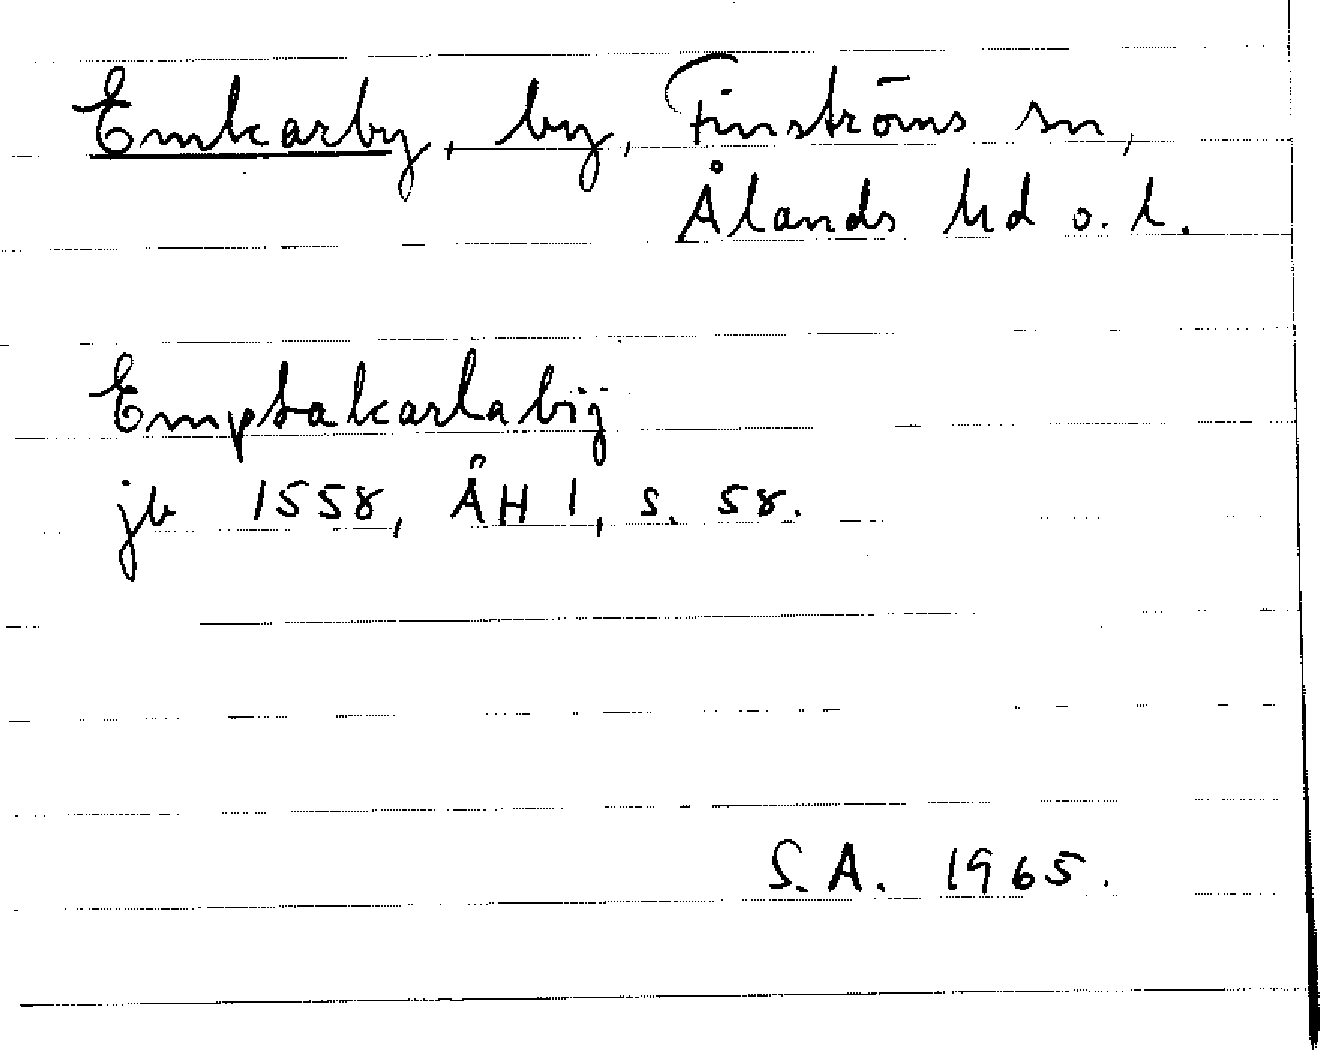 Emkarby, by, Finströms sn,
Ålands hd o. l.
Emptakarlabÿ
jb 1558, ÅH 1, s. 58.
S.A. 1965.